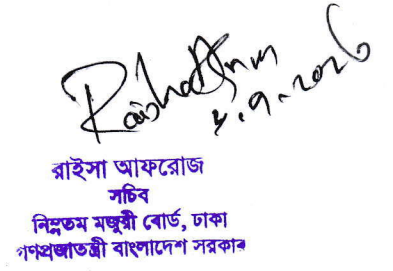 ৮.৭.২০২৬
রাইসা আফরোজ
সচিব
নিম্নতম মজুরী বোর্ড, ঢাকা
গণপ্রজাতন্ত্রী বাংলাদেশ সরকার